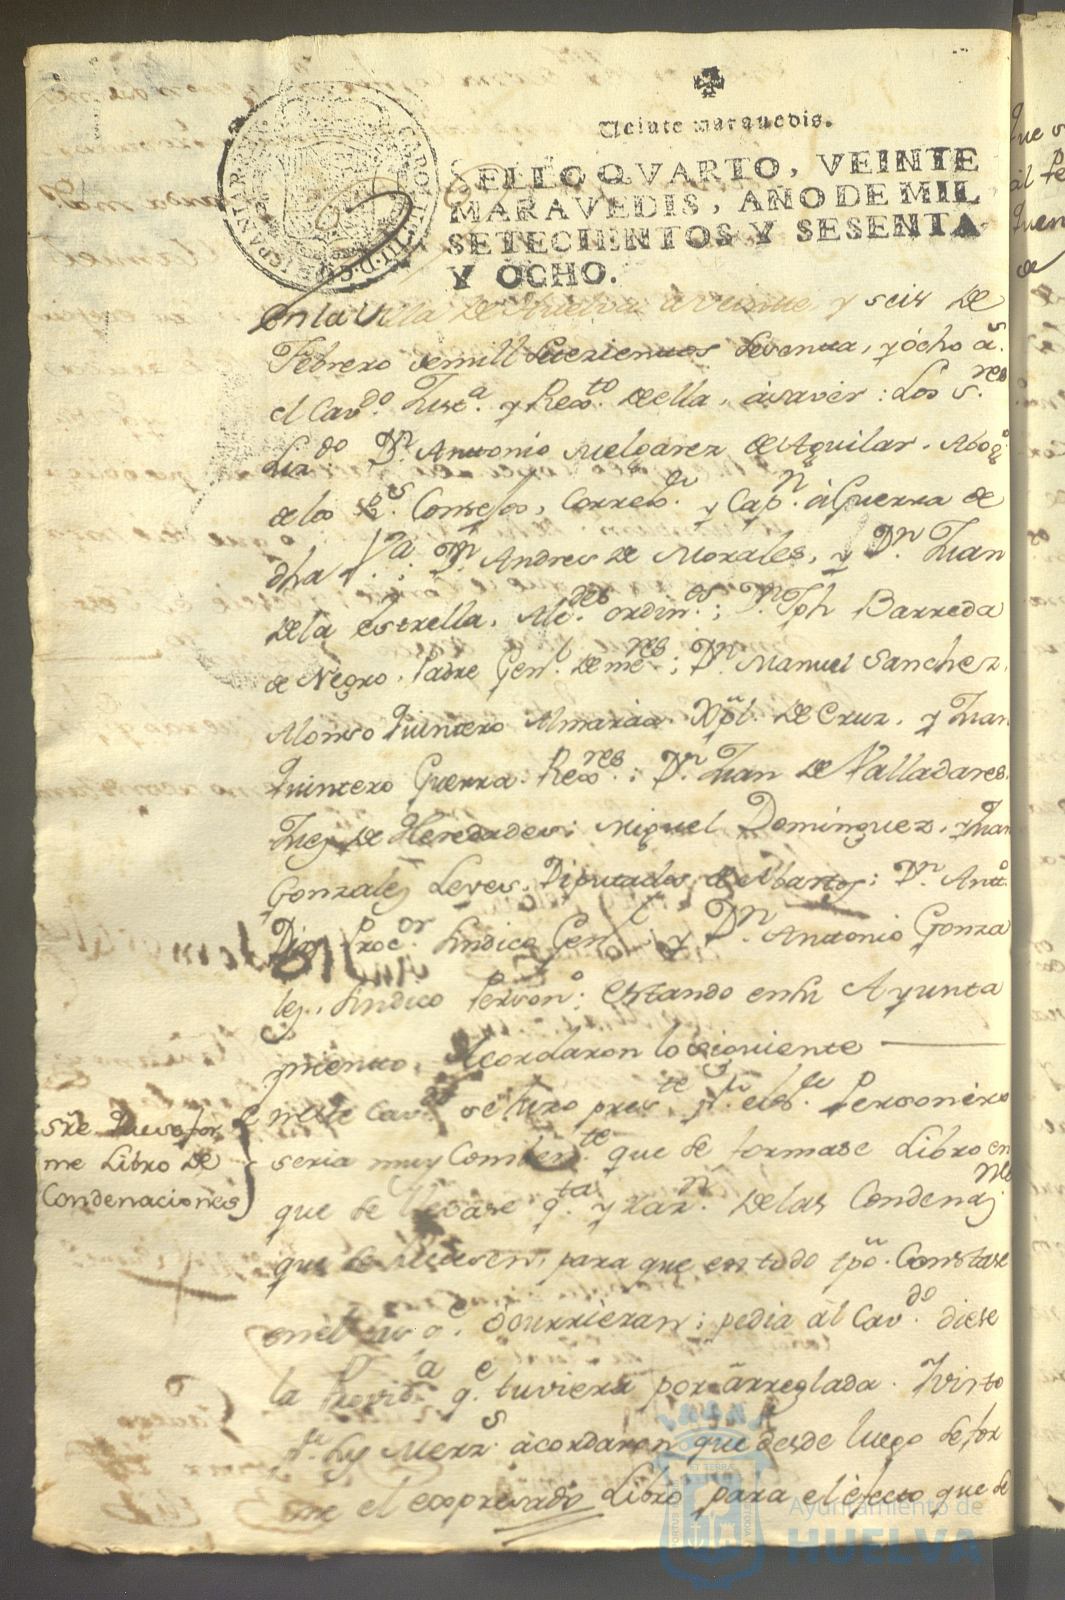 Veinte maravedis.
SELLO QVARTO, VEINTE
MARAVEDIS, AÑO DE MIL
SETECIENTOS Y SESENTA
Y OCHO.
En la Villa de Huelva a veinte y seis de
Febrero de mill setezientos sesenta, y ócho a.s
el Cav.do Just.a y Rex.to de ella, ásaver: Los S.res
Liz.do D.n Antonio Melgarez de Aguilar, Abog.o
de los R.s Consejos, Correx.or y Cap.n á Guerra de
dha V.a; D.n Andres de Morales, y D.n Juan
de la Estrella, Alc.des ordin.os; D.n Jph Barreda
de Negro, Padre Gen.l de me.res; D.n Manuel Sanchez,
Alonso Quintero Almansa, Xptl. de Cruz, y Juan
Quintero Guerra, Rex.res; D.n Juan de Valladares,
Juez de Heredades; Miguel Dominguez, y Juan
Gonzalez Leves, Diputados de Abastos; D.n Ant.o
Proc.or Sindico Gen.l y D.n Antonio Gonza
lez, Sindico Person.o; Estando en su Ayunta
miento, Acordaron lo siguiente
sre que se for
me Libro de
Condenaciones
En este Cav.do se hizo pres.te p.r el S.or Personero
seria muy Combien.te que se formase Libro en
que se llevase q.ta y raz.n de las Condenaz.nes
que se hiciesen, para que en todo tpo. Constase
q.e ócurrieran; pedia al Cav.do diese
la Provid.a q.e tuviera por árreglada. Y visto
Merz.s ácordaron que desde luego se for
me el expresado Libro para el efecto que se
Ayuntamiento de
HUELVA